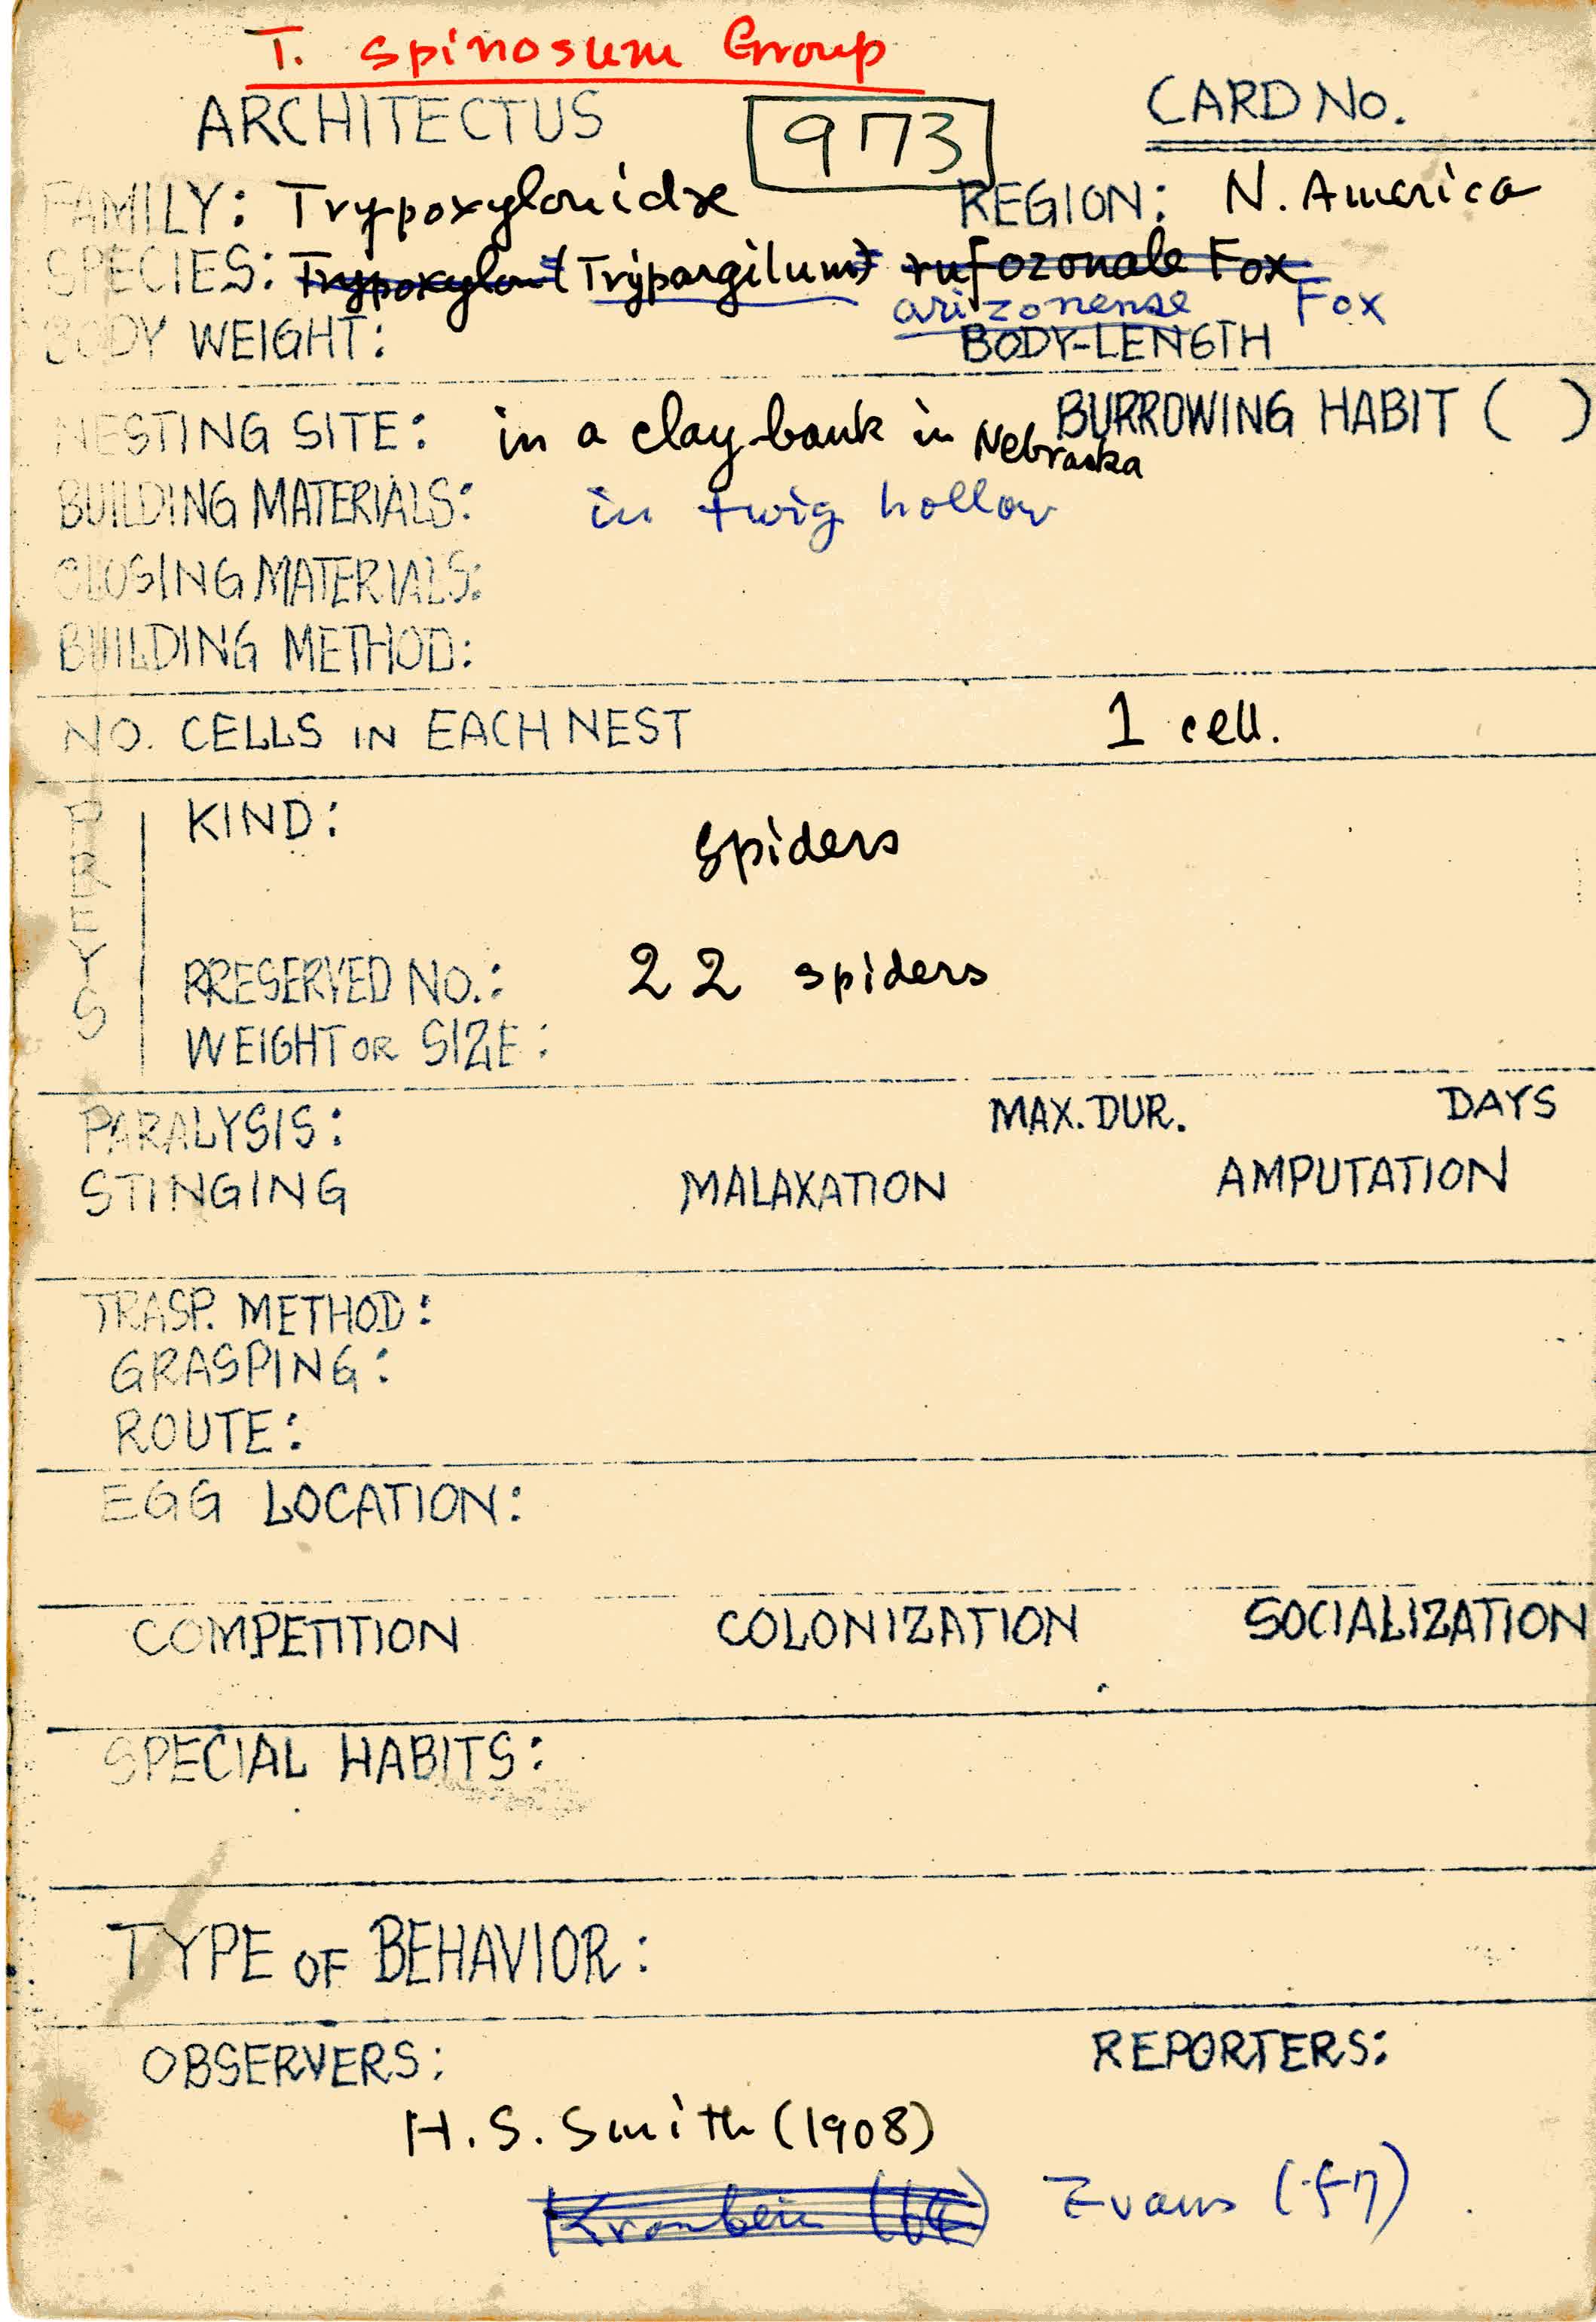 T. spinosum Group
ARCHITECTUS 973 CARD No.
FAMILY: Trypoxylonidae REGION: N. America
SPECIES: Trypoxylon (Trypargilum) rufozonale Fox
arizonense Fox
BODY WEIGHT: BODY-LENGTH
NESTING SITE: in a clay bank in Nebraska BURROWING HABIT ( )
BUILDING MATERIALS: in twig hollow
CLOSING MATERIALS:
BUILDING METHOD:
NO. CELLS IN EACH NEST 1 cell.
PREYS
KIND: spiders
PRESERVED NO.: 22 spiders
WEIGHT OR SIZE:
PARALYSIS: MAX. DUR. DAYS
STINGING MALAXATION AMPUTATION
TRASP. METHOD:
GRASPING:
ROUTE:
EGG LOCATION:
COMPETITION COLONIZATION SOCIALIZATION
SPECIAL HABITS:
TYPE OF BEHAVIOR:
OBSERVERS: REPORTERS:
H. S. Smith (1908)
Krombein (64) Evans ('57)